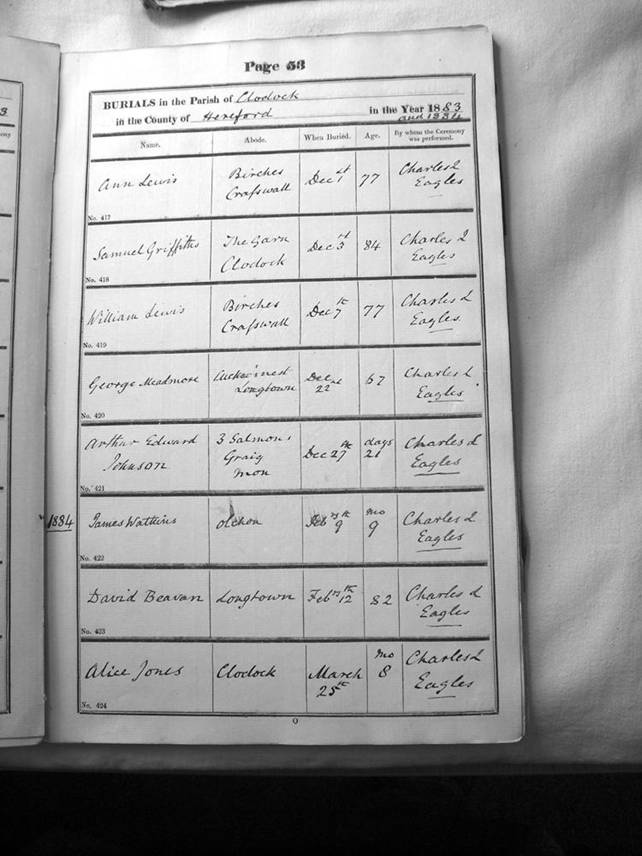 Page 53
BURIALS in the Parish of Clodock
in the County of Hereford in the Year 1883
and 1884
Name. Abode. When Buried. Age. By whom the Ceremony was performed.
Ann Lewis Birches Craswall Dec 1st 77 Charles L Eagles
No. 417
Samuel Griffiths The Garn Clodock Dec 3rd 84 Charles L Eagles
No. 418
William Lewis Birches Craswall Dec 7th 77 Charles L Eagles
No. 419
George Meadmore Longtown Dec 22nd 67 Charles L Eagles
No. 420
Arthur Edward Johnson 3 Salmons Graig Mon Dec 27th days 21 Charles L Eagles
No. 421
1884 James Watkins Olchon Feb 9th mo 9 Charles L Eagles
No. 422
David Beavan Longtown Feb 12th 82 Charles L Eagles
No. 423
Alice Jones Clodock March 25th mo 8 Charles L Eagles
No. 424